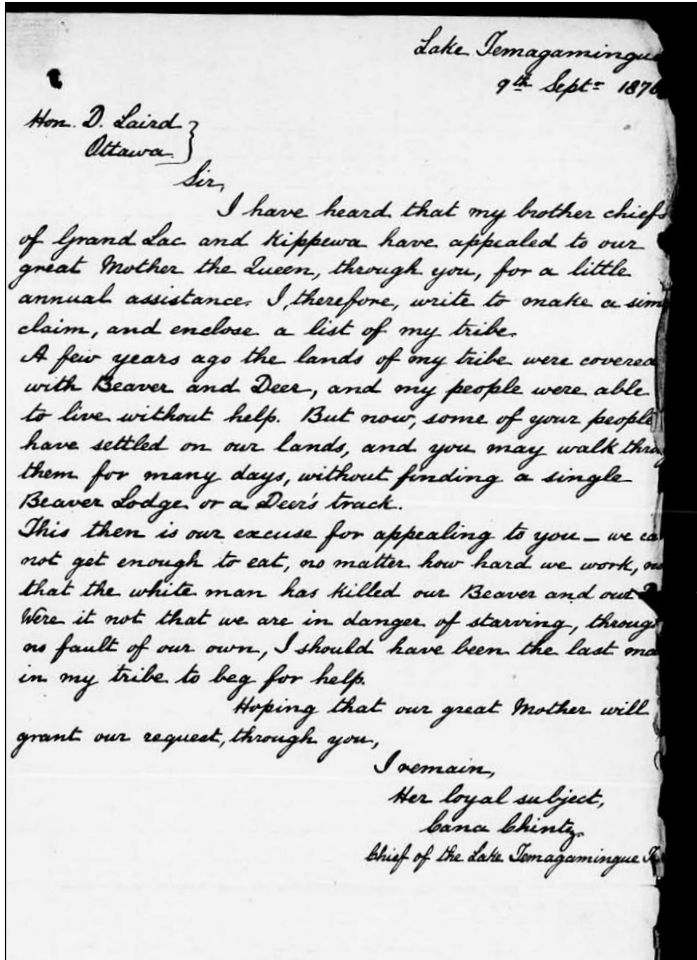 Lake Temagamingue
9th Sept= 1876
Hon. D. Laird }
Ottawa }
Sir,
I have heard that my brother chiefs
of Grand Lac and Kippewa have appealed to our
great Mother the Queen, through you, for a little
annual assistance. I, therefore, write to make a sim
claim, and enclose a list of my tribe.
A few years ago the lands of my tribe were covered
with Beaver and Deer, and my people were able
to live without help. But now, some of your people
have settled on our lands, and you may walk throu
them for many days, without finding a single
Beaver Lodge or a Deer's track.
This then is our excuse for appealing to you – we ca
not get enough to eat, no matter how hard we work, no
that the white man has killed our Beaver and our D
Were it not that we are in danger of starving, through
no fault of our own, I should have been the last ma
in my tribe to beg for help.
Hoping that our great Mother will
grant our request, through you,
I remain,
Her loyal subject,
Cana Chintz.
Chief of the Lake Temagamingue